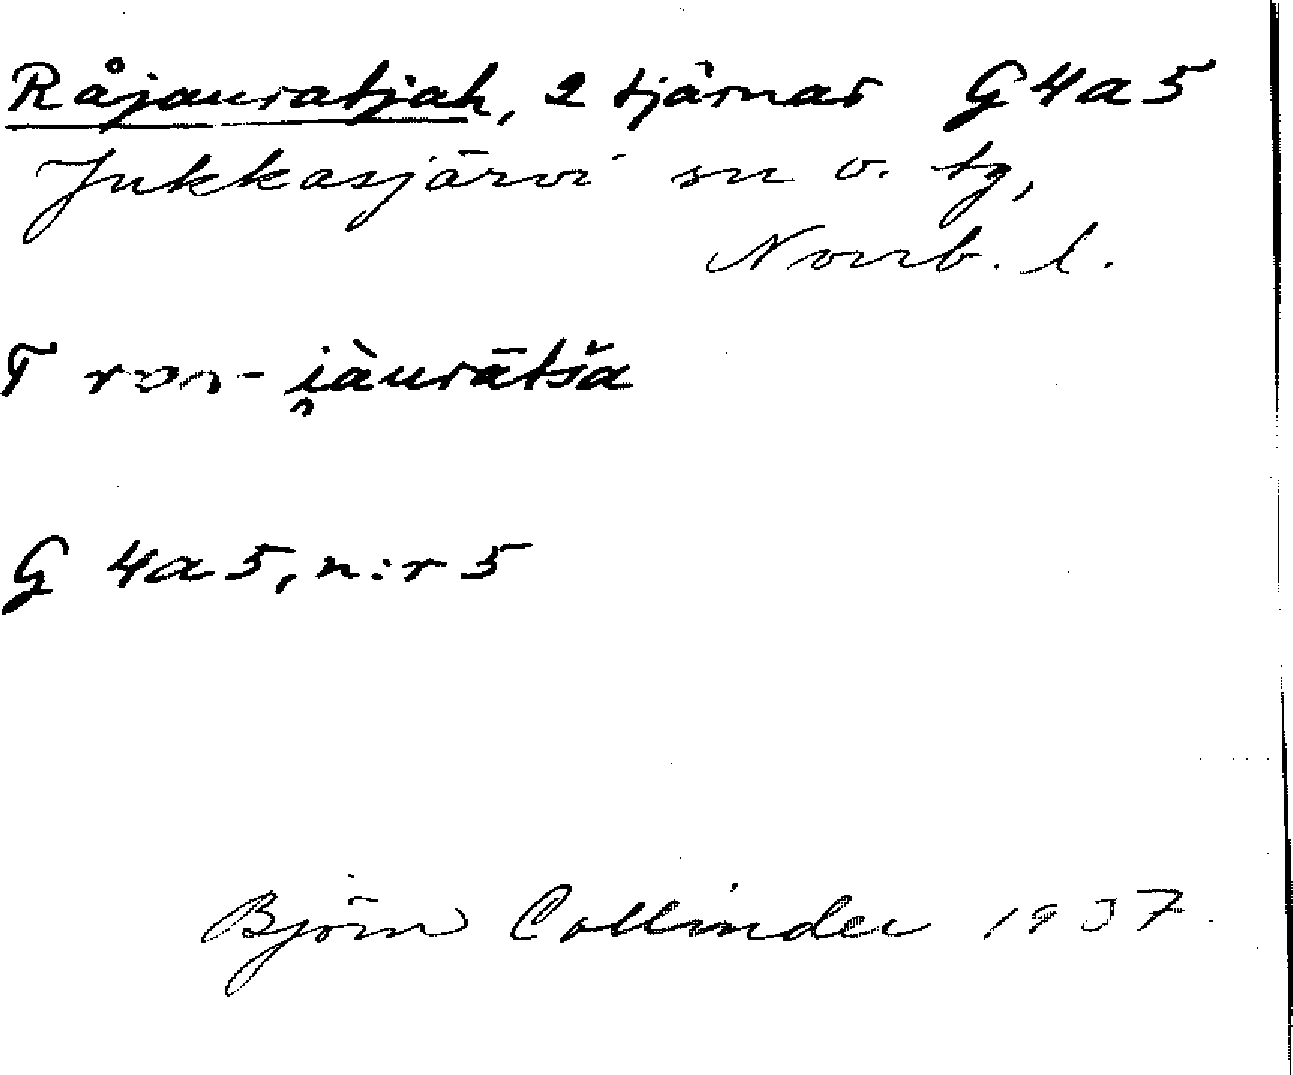 Råjauratjah, 2 tjärnar G4a5
Jukkasjärvi sn o. tg,
Norrb. l.
T i̯àurātša
G 4a5, n:r 5
Björn Collinder 1937.